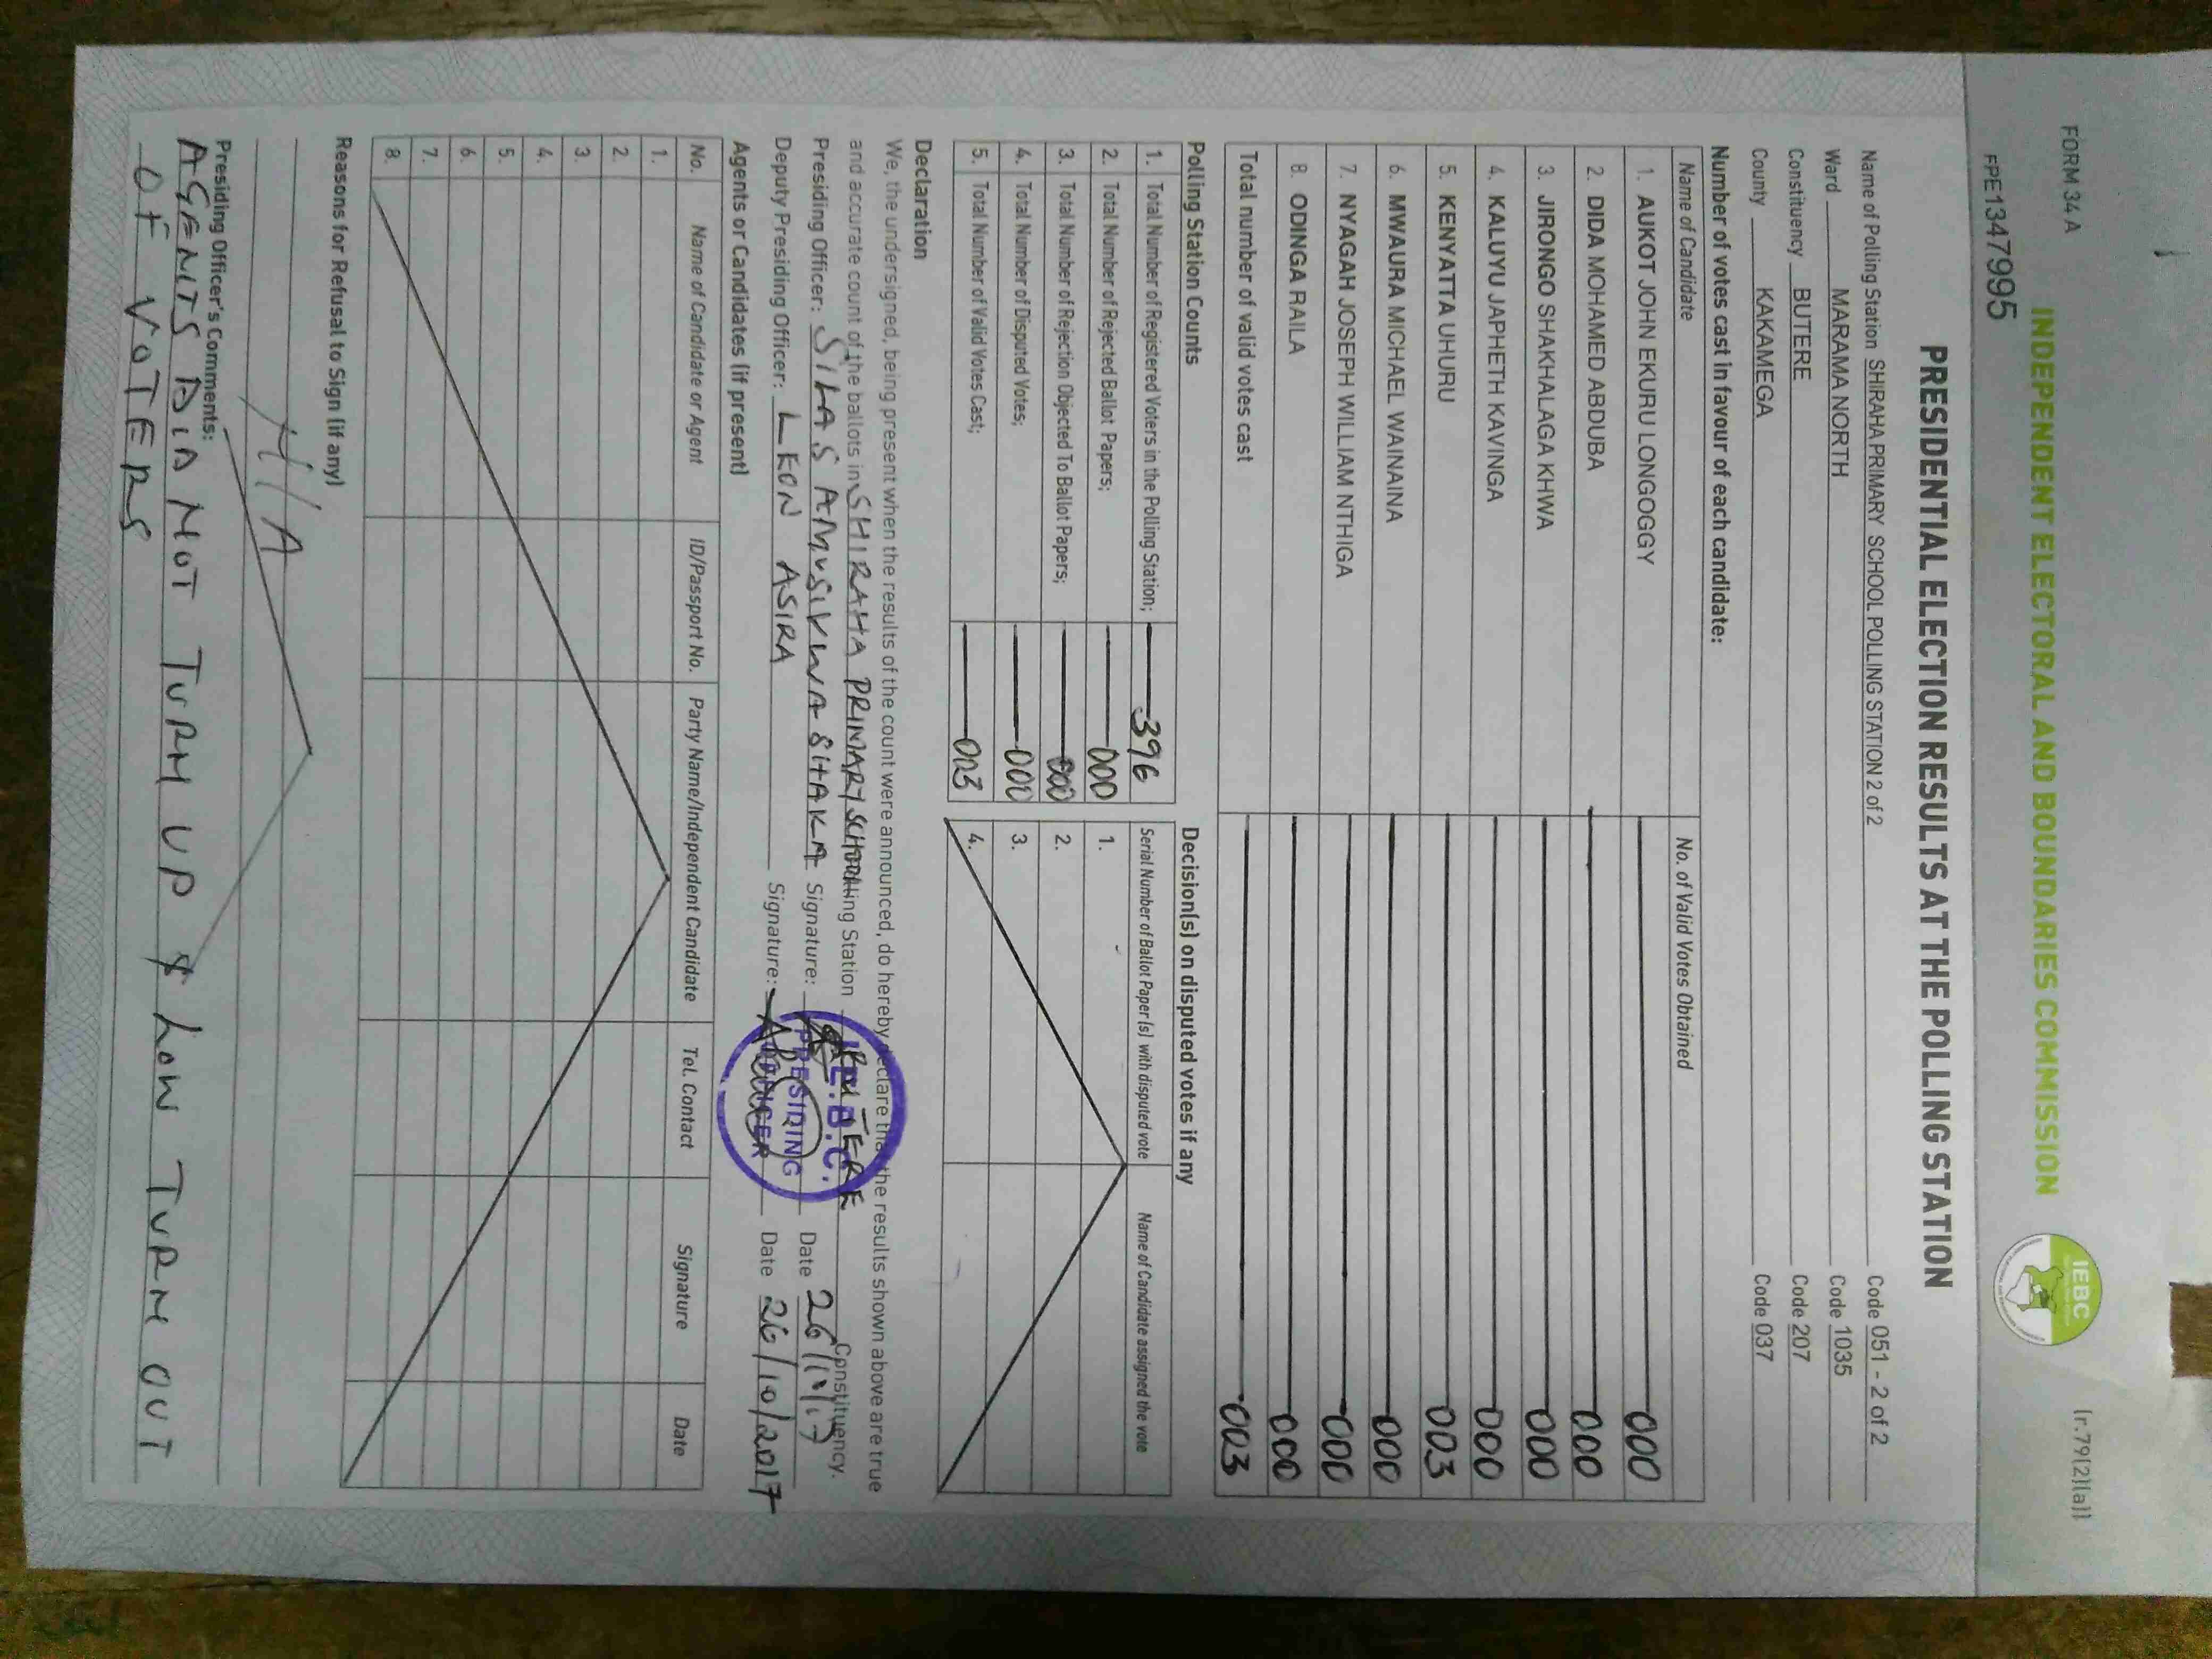 FORM 34 A
(r.79(2)(a))
INDEPENDENT ELECTORAL AND BOUNDARIES COMMISSION
IEBC
FPE1347995
PRESIDENTIAL ELECTION RESULTS AT THE POLLING STATION
Name of Polling Station SHIRAHA PRIMARY SCHOOL POLLING STATION 2 of 2 Code 051 - 2 of 2
Ward MARAMA NORTH Code 1035
Constituency BUTERE Code 207
County KAKAMEGA Code 037
Number of votes cast in favour of each candidate:
Name of Candidate No. of Valid Votes Obtained
1. AUKOT JOHN EKURU LONGOGGY 000
2. DIDA MOHAMED ABDUBA 000
3. JIRONGO SHAKHALAGA KHWA 000
4. KALUYU JAPHETH KAVINGA 000
5. KENYATTA UHURU 003
6. MWAURA MICHAEL WAINAINA 000
7. NYAGAH JOSEPH WILLIAM NTHIGA 000
8. ODINGA RAILA 000
Total number of valid votes cast 003
Polling Station Counts
1. Total Number of Registered Voters in the Polling Station; 396
2. Total Number of Rejected Ballot Papers; 000
3. Total Number of Rejection Objected To Ballot Papers; 000
4. Total Number of Disputed Votes; 000
5. Total Number of Valid Votes Cast; 003
Decision(s) on disputed votes if any
Serial Number of Ballot Paper (s) with disputed vote Name of Candidate assigned the vote
1.
2.
3.
4.
Declaration
We, the undersigned, being present when the results of the count were announced, do hereby declare that the results shown above are true
and accurate count of the ballots in SHIRAHA PRIMARY SCHOOL Polling Station BUTERE Constituency.
Presiding Officer: SILAS AMUSIKWA SITAKA Signature: Date 26/10/17
Deputy Presiding Officer: LEON ASIRA Signature: Date 26/10/2017
I.E.B.C.
PRESIDING
OFFICER
Agents or Candidates (if present)
No. Name of Candidate or Agent ID/Passport No. Party Name/Independent Candidate Tel. Contact Signature Date
1.
2.
3.
4.
5.
6.
7.
8.
Reasons for Refusal to Sign (if any)
N/A
Presiding Officer's Comments:
AGENTS DID NOT TURN UP & LOW TURN OUT
OF VOTERS